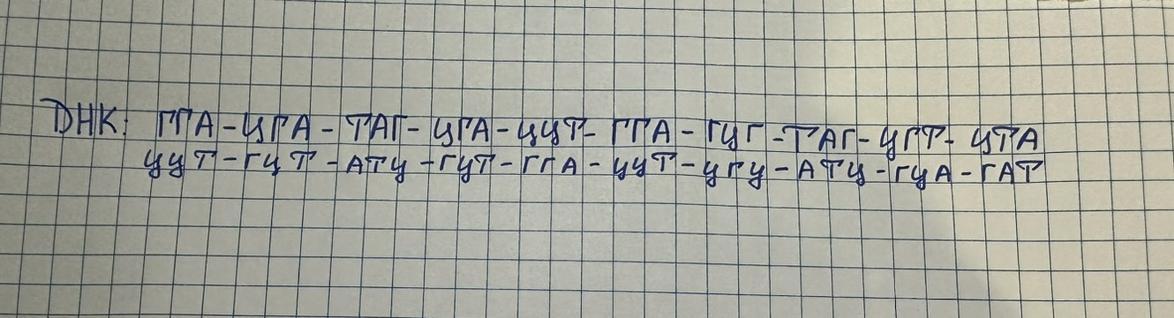 ДНК: ГГА - ЦГА - ТАГ - ЦГА - ЦЦТ - ГГА - ГЦГ - ТАГ - ЦГТ - ЦТА
ЦЦТ - ГЦТ - АТЦ - ГЦТ - ГГА - ЦЦТ - ЦГЦ - АТЦ - ГЦА - ГАТ